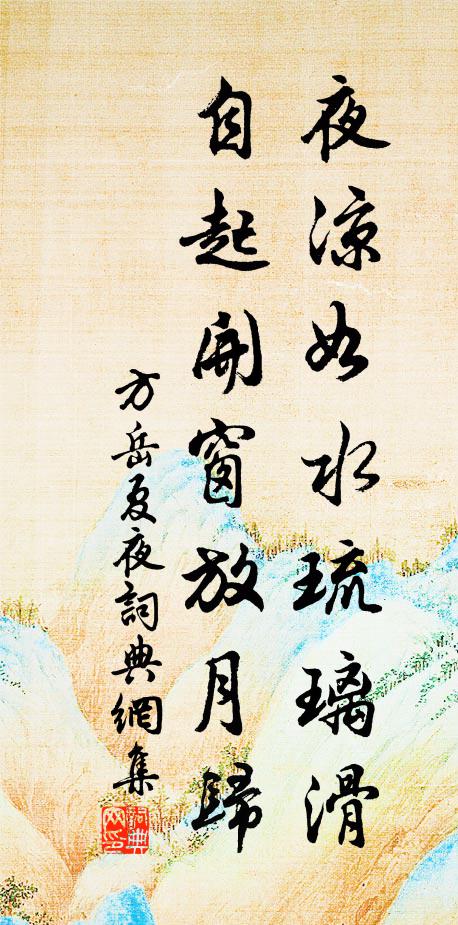 夜涼如水琉璃滑
自起開窗放月歸
方岳夏夜詞典網集
詞典网印